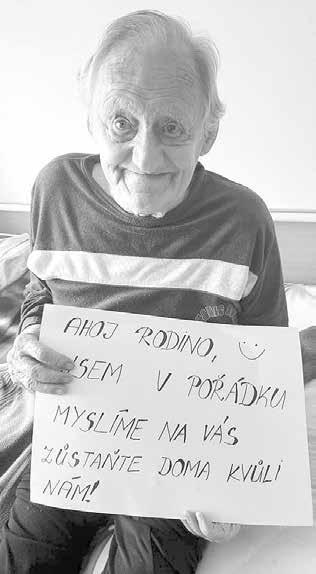 AHOJ RODINO,
JSEM V POŘÁDKU
MYSLÍME NA VÁS
ZŮSTAŇTE DOMA KVŮLI
NÁM!